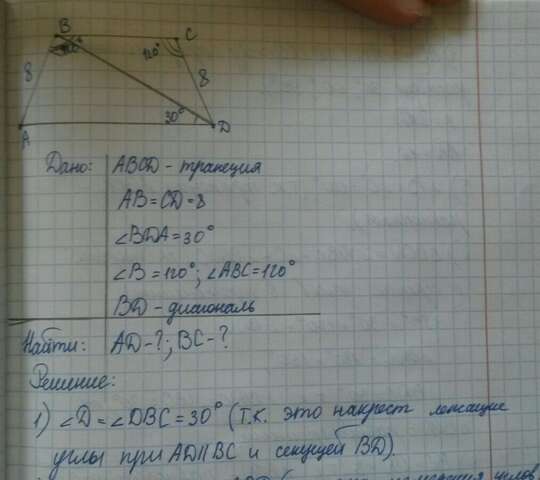 B C
120° 120°
8 8
30°
A D
Дано: ABCD - трапеция
AB=CD=8
∠BDA=30°
∠B=120°; ∠ABC=120°
BD - диагональ
Найти: AD-?; BC-?
Решение:
1) ∠D=∠DBC=30° (т.к. это накрест лежащие
углы при AD||BC и секущей BD).
углов